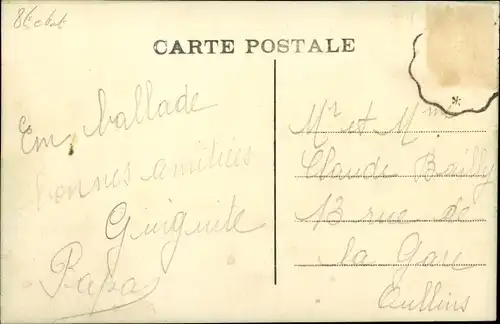 CARTE POSTALE
Em ballade
bonnes amitiées
Guiguite
Papa
Mr et Mme
Claude Bailly
13 rue de
la Gare
Oullins